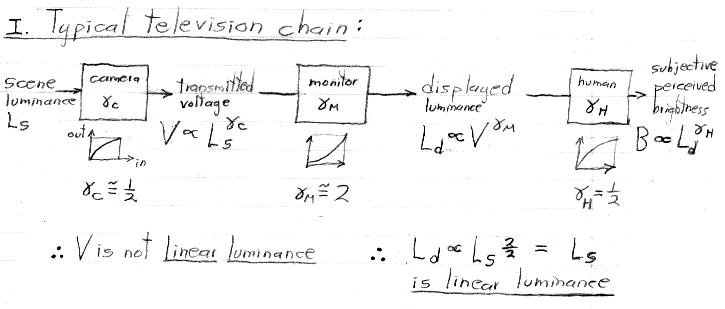 I. Typical television chain:
scene luminance Ls
camera γc
transmitted voltage
V ∝ Ls^γc
monitor γM
displayed luminance
Ld ∝ V^γM
human γH
subjective perceived brightness
B ∝ Ld^γH
out
in
γc ≅ 1/2
γM ≅ 2
γH = 1/2
∴ V is not linear luminance
∴ Ld ∝ Ls^2/2 = Ls
is linear luminance